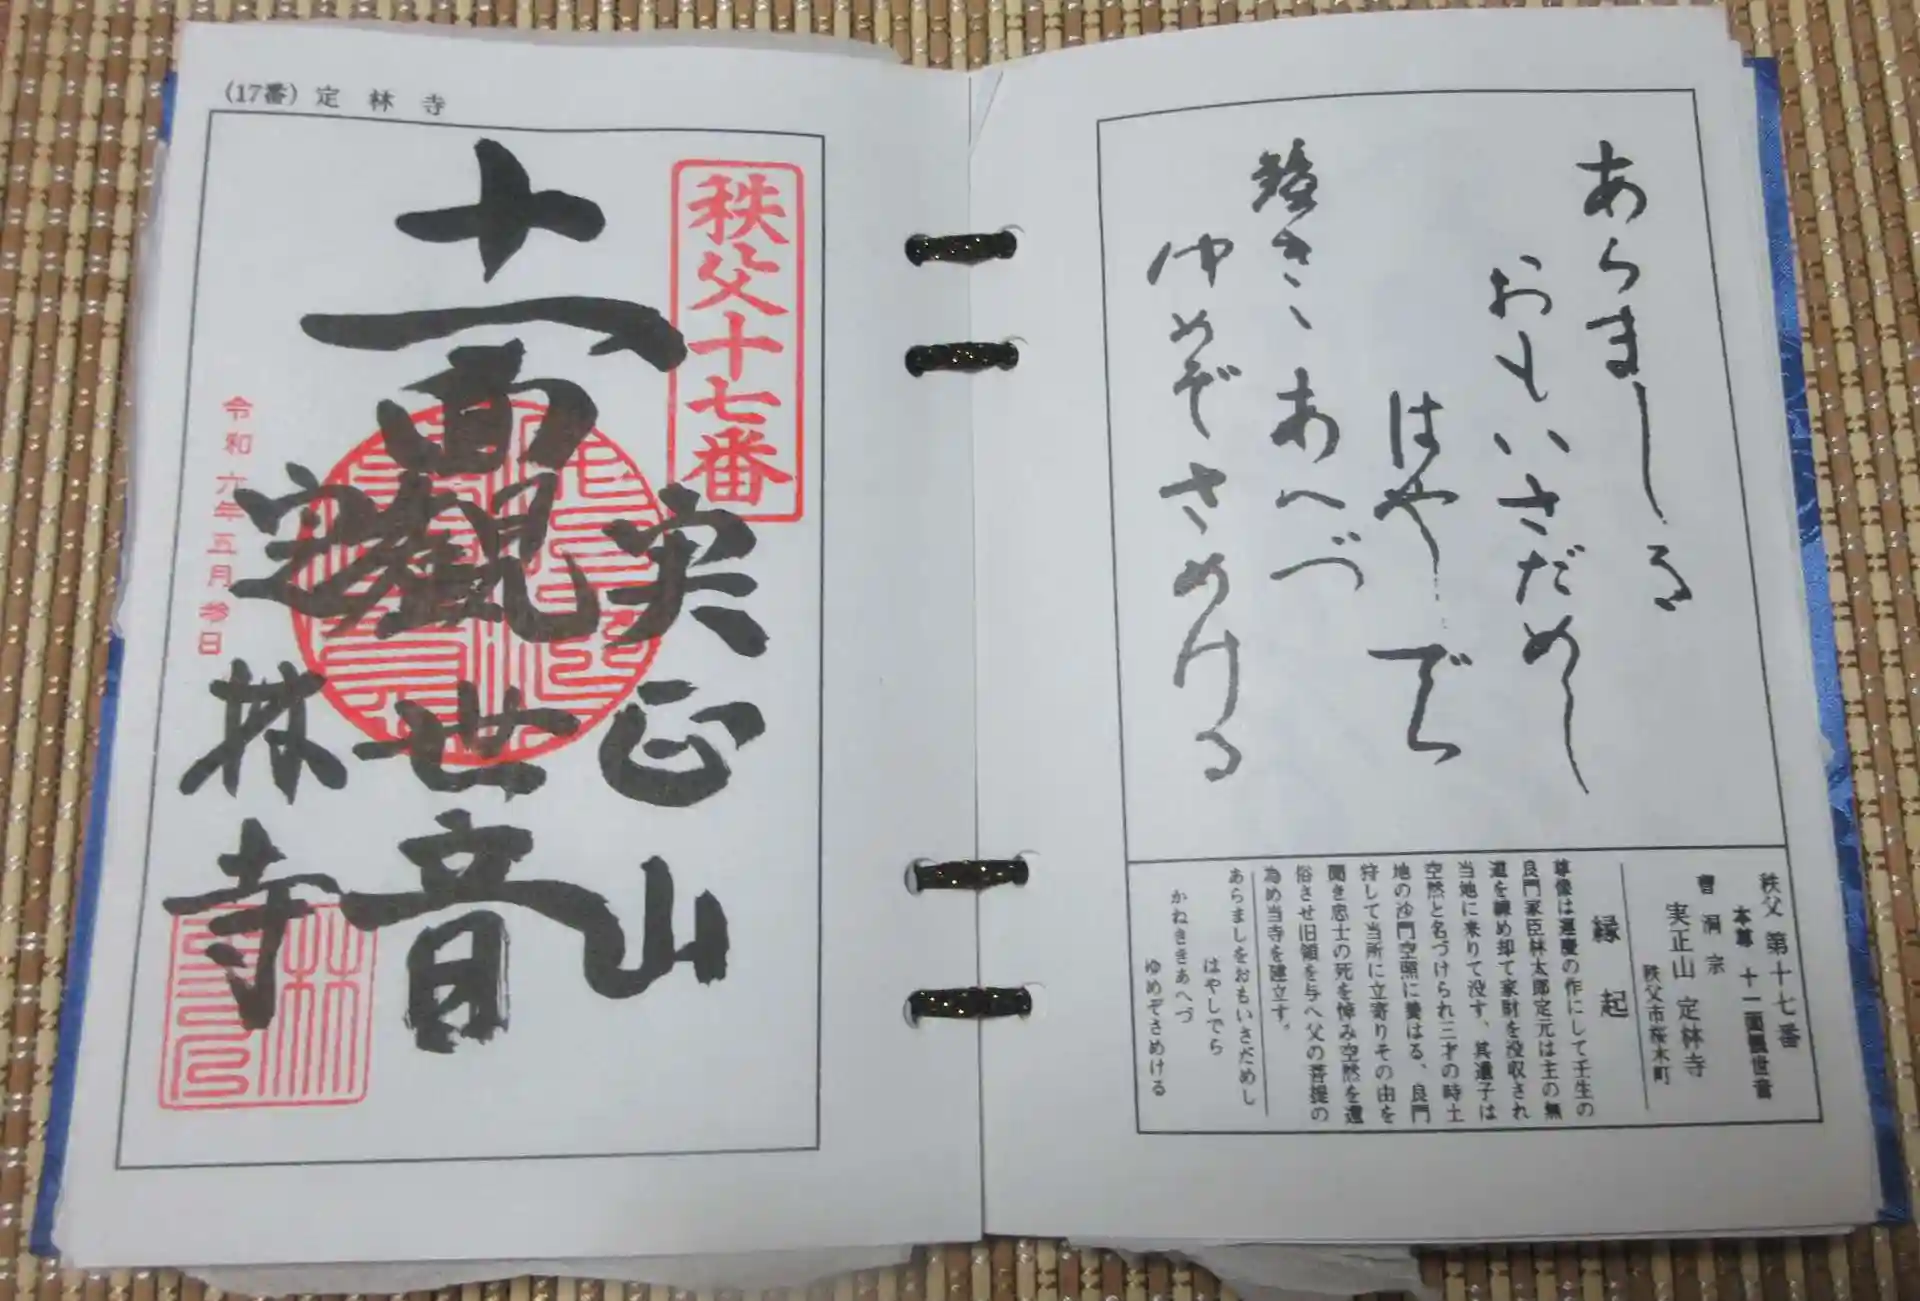 あらましを
おもいさだめし
はやしでら
鐘きゝあへづ
ゆめぞさめける
秩父 第十七番
本尊 十一面観世音
曹洞宗
実正山 定林寺
秩父市桜木町
縁起
尊像は運慶の作にして壬生の
良門家臣林太郎定元は主の無
道を諌め却て家財を没収され
当地に来りて没す、其遺子は
空然と名づけられ三才の時土
地の沙門空照に養はる、良門
狩して当所に立寄りその由を
聞き忠士の死を悼み空然を還
俗させ旧領を与へ父の菩提の
為め当寺を建立す。
あらましをおもいさだめし
はやしでら
かねききあへづ
ゆめぞさめける
(17番) 定林寺
秩父十七番
実正山
十一面観世音
定林寺
令和六年五月参日